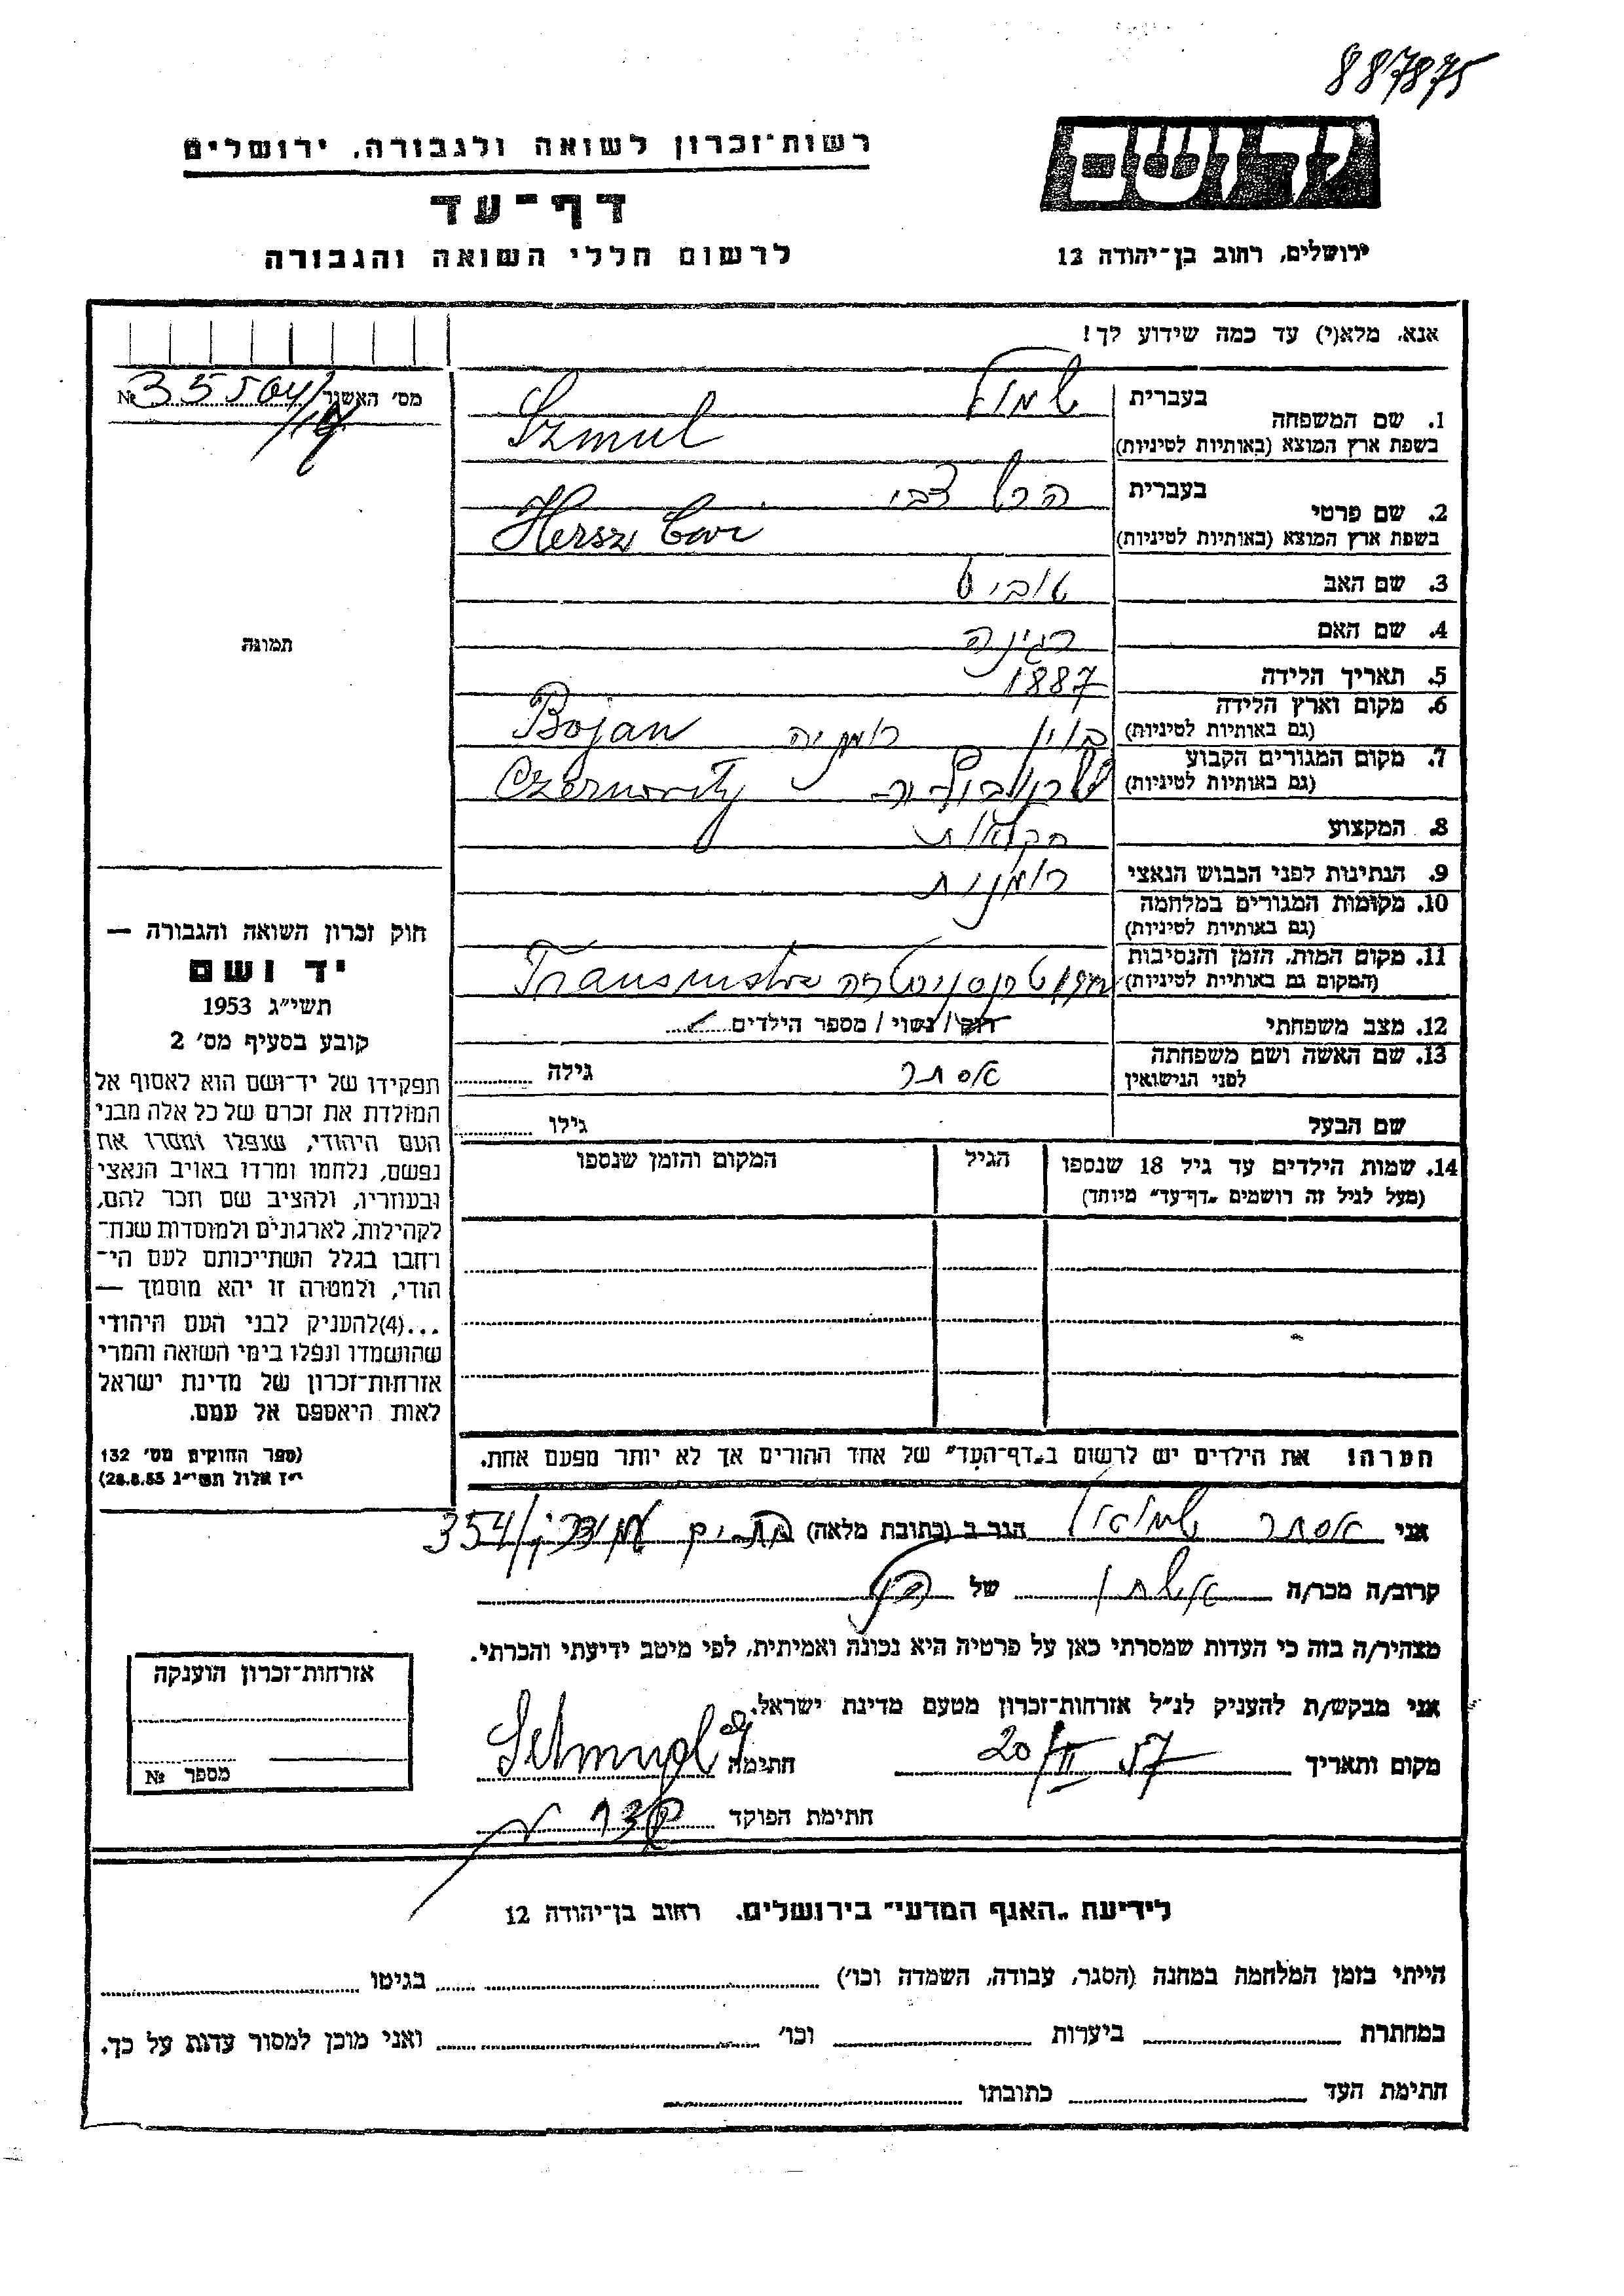 887875
רשות־זכרון לשואה ולגבורה, ירושלים
דף־עד
לרשום חללי השואה והגבורה
יד ושם
ירושלים, רחוב בן־יהודה 12
אנא, מלא(י) עד כמה שידוע לך!
מס׳ האשנר № 35504/
1. שם המשפחה
בעברית
בשפת ארץ המוצא (באותיות לטיניות)
Szmul
2. שם פרטי
בעברית הרש צבי
בשפת ארץ המוצא (באותיות לטיניות) Hersz
3. שם האב
4. שם האם רגינה
5. תאריך הלידה 1887
6. מקום וארץ הלידה
(גם באותיות לטיניות) בוין רומניה Bojan
7. מקום המגורים הקבוע
(גם באותיות לטיניות) Czernovitz
8. המקצוע חקלאות
9. הנתינות לפני הכבוש הנאצי רומנית
10. מקומות המגורים במלחמה
(גם באותיות לטיניות)
11. מקום המות, הזמן והנסיבות
(המקום גם באותיית לטיניות) טרנסניסטריה
12. מצב משפחתי רוק/ נשוי/ מספר הילדים
13. שם האשה ושם משפחתה
לפני הנישואין אסתר גילה
שם הבעל גילו
14. שמות הילדים עד גיל 18 שנספו
(מעל לגיל זה רושמים „דף־עד״ מיוחד)
הגיל
המקום והזמן שנספו
תמונה
חוק זכרון השואה והגבורה —
יד ושם
תשי״ג 1953
קובע בסעיף מס׳ 2
תפקידו של יד־ושם הוא לאסוף אל
המולדת את זכרם של כל אלה מבני
העם היהודי, שנפלו ומסרו את
נפשם, נלחמו ומרדו באויב הנאצי
ובעוזריו, ולהציב שם וזכר להם,
לקהילות, לארגונים ולמוסדות שנח־
רחבו בגלל השתייכותם לעם הי־
הודי, ולמטרה זו יהא מוסמך —
...(4)להעניק לבני העם היהודי
שהושמדו ונפלו בימי השואה והמרי
אזרחות־זכרון של מדינת ישראל
לאות היאספם אל עמם.
(ספר החוקים מס׳ 132
י״ז אלול תשי״ג 28.8.53)
הערה! את הילדים יש לרשום ב„דף־העד״ של אחד ההורים אך לא יותר מפעם אחת.
אני אסתר שמואל הגר ב (כתובת מלאה) 354/
קרוב/ה מכר/ה אשתו של
מצהיר/ה בזה כי העדות שמסרתי כאן על פרטיה היא נכונה ואמיתית, לפי מיטב ידיעתי והכרתי.
אני מבקש/ת להעניק לנ״ל אזרחות־זכרון מטעם מדינת ישראל.
מקום ותאריך 20/II 57 חתימה
חתימת הפוקד
אזרחות־זכרון הוענקה
מספר №
לידיעת „האגף המדעי״ בירושלים, רחוב בן־יהודה 12
הייתי בזמן המלחמה במחנה (הסגר, עבודה, השמדה וכו׳) בגיטו
במחתרת ביערות וכו׳ ואני מוכן למסור עדות על כך.
חתימת העד כתובתו